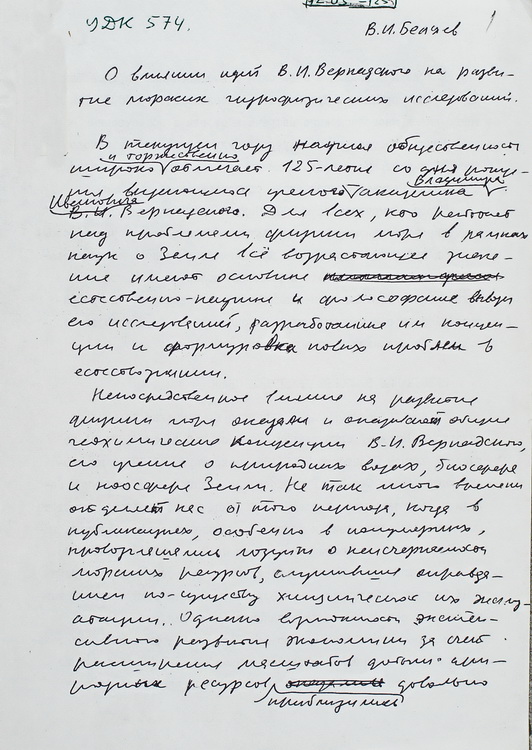 УДК 574.
В.И.Беляев
О влиянии идей В.И.Вернадского на разви-
тие морских гидрофизических исследований.
В текущем году научная общественность
и торжественно
широко отмечает 125-летие со дня рожде-
Владимира
ния выдающегося ученого академика
Ивановича
В.И.Вернадского. Для всех, кто работает
над проблемами физики моря в рамках
наук о Земле всё возрастающее значе-
ние имеют основные
естественно-научные и философские выводы
его исследований, разработанные им концеп-
ции и формулировка новых проблем в
естествознании.
Непосредственное влияние на развитие
физики моря оказали и оказывают общие
геохимические концепции В.И.Вернадского,
его учение о природных водах, биосфере
и ноосфере Земли. Не так много времени
отделяет нас от того периода, когда в
публикациях, особенно в популярных,
провозглашались лозунги о неисчерпаемости
морских ресурсов, служившие оправда-
нием по-существу хищнической их эксплу-
атации. Однако возможности экстен-
сивного развития экономики за счет
расширения масштабов добычи при-
родных ресурсов довольно
приблизились